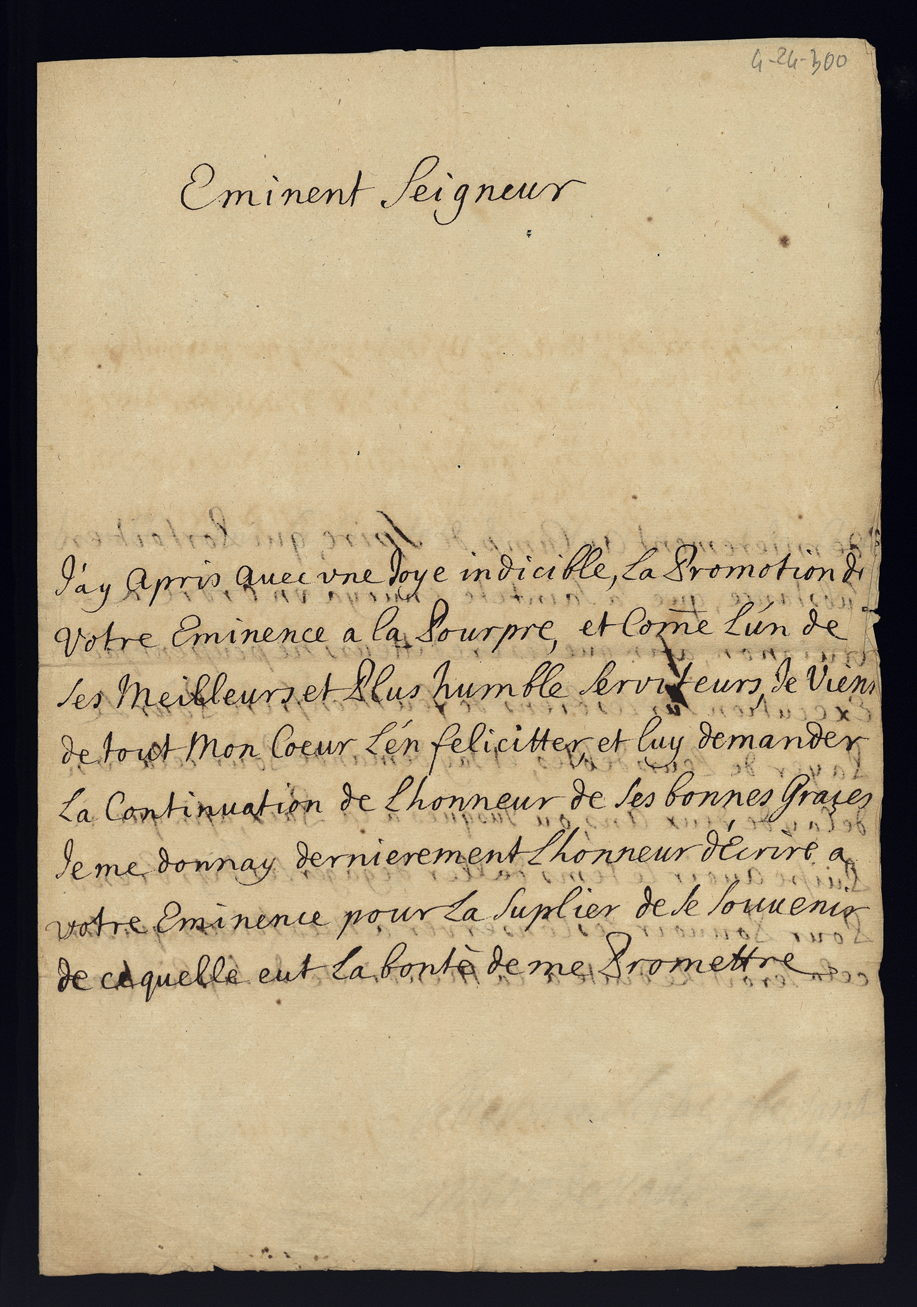 4-24-300
Eminent Seigneur
J'ay apris avec vne Joye indicible, La Promotion de
votre Eminence a la Pourpre, et Come L'ún de
ses Meilleurs et Plus humble serviteurs, Je Viens
de tout Mon Coeur L'én felicitter, et luy demander
La Continuation de Lhonneur de ses bonnes Graçes
Je me donnay dernierement Lhonneur d'Écrire a
votre Eminence pour La suplier de se souuenir
de ce quelle eut La bontè de me Promettre